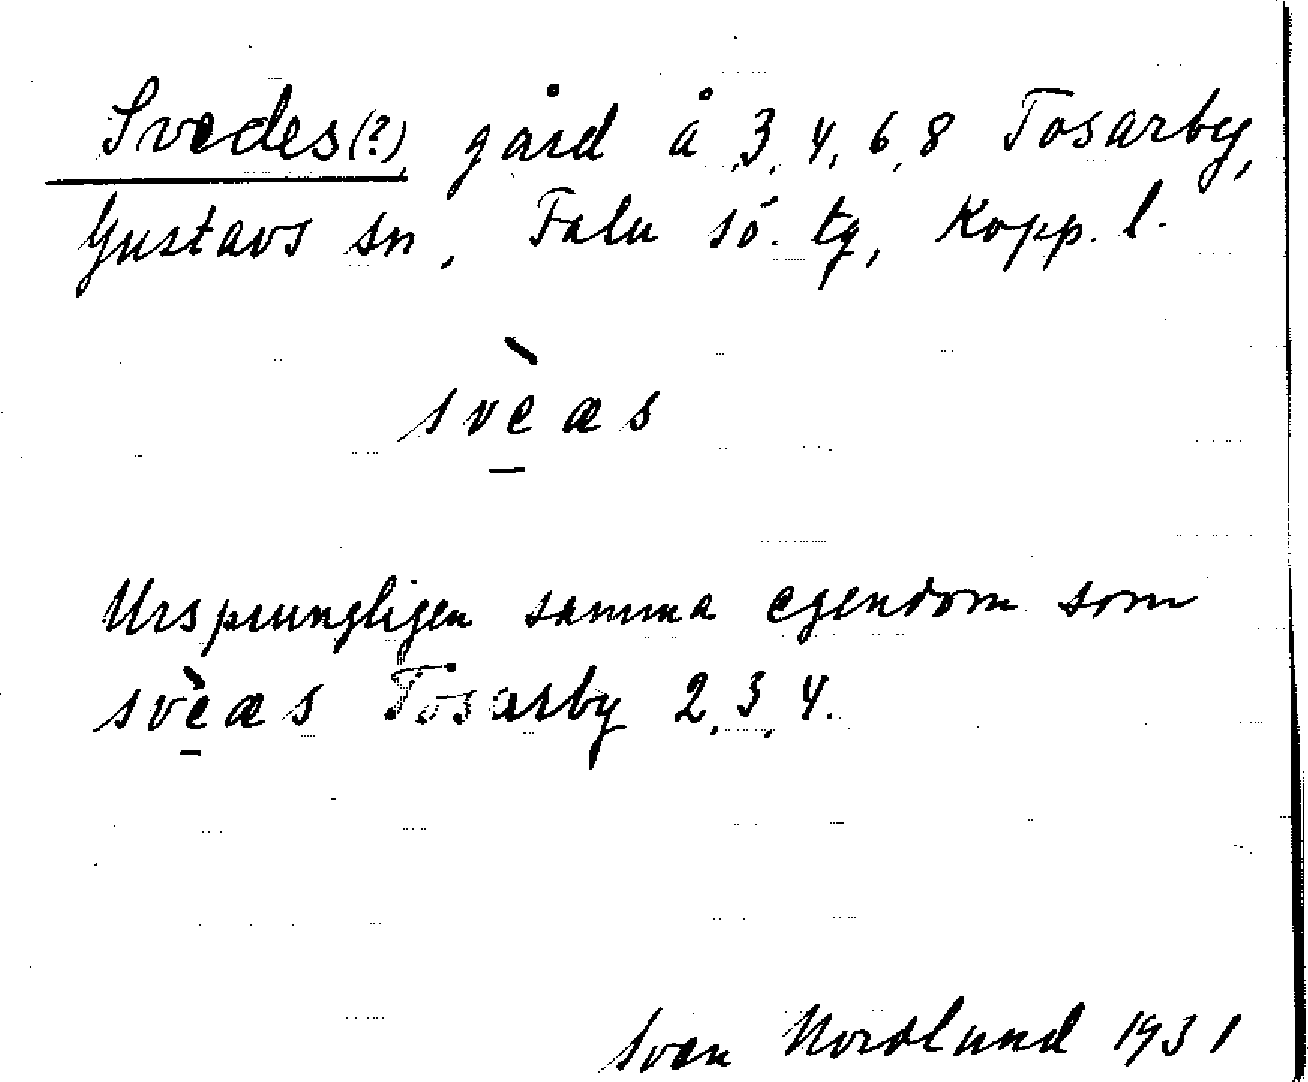 Svedes(?), gård å 3, 4, 6, 8 Tosarby,
Gustavs sn, Falu sö. tg, Kopp. l.
svè̠æs
Ursprungligen samma egendom som
svè̠æs Tosarby 2, 3, 4.
Sven Nordlund 1931